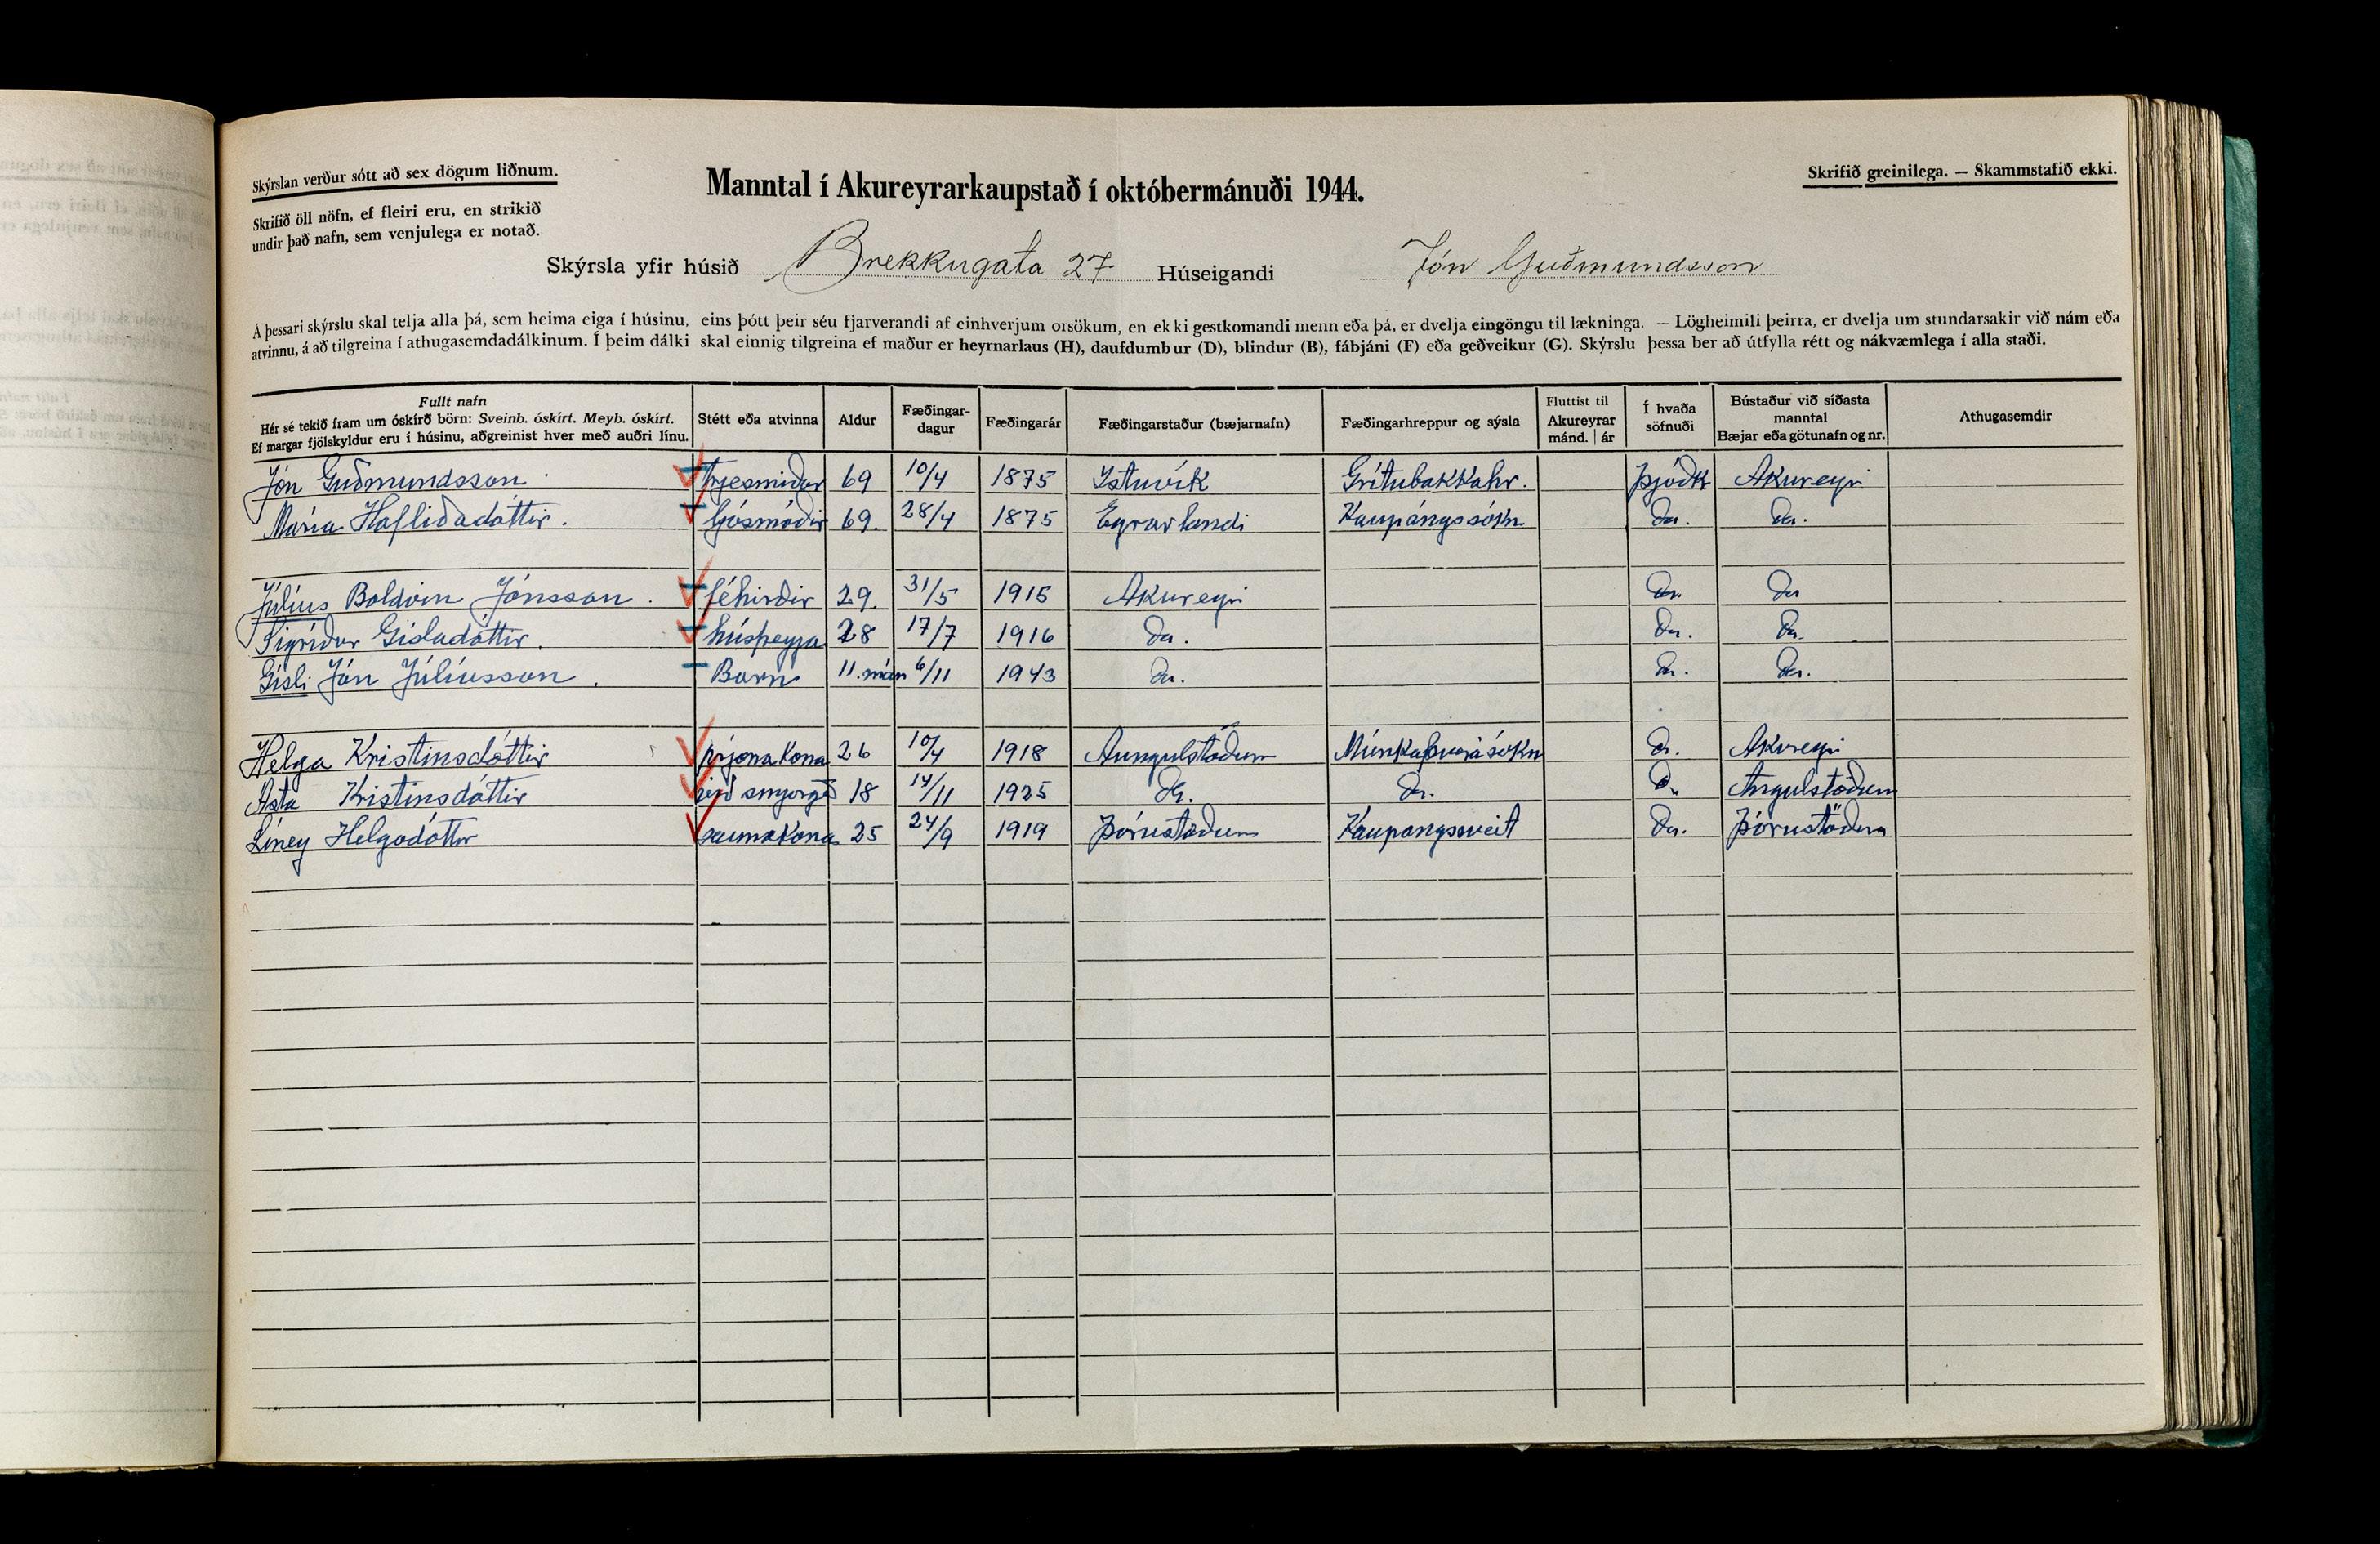 Skýrslan verður sótt að sex dögum liðnum.
Skrifið öll nöfn, ef fleiri eru, en strikið
undir það nafn, sem venjulega er notað.
Manntal í Akureyrarkaupstað í októbermánuði 1944.
Skrifið greinilega. — Skammstafið ekki.
Skýrsla yfir húsið Brekkugata 27 Húseigandi Jón Guðmundsson
Á þessari skýrslu skal telja alla þá, sem heima eiga í húsinu, eins þótt þeir séu fjarverandi af einhverjum orsökum, en ekki gestkomandi menn eða þá, er dvelja eingöngu til lækninga. — Lögheimili þeirra, er dvelja um stundarsakir við nám eða
atvinnu, á að tilgreina í athugasemdadálkinum. Í þeim dálki skal einnig tilgreina ef maður er heyrnarlaus (H), daufdumbur (D), blindur (B), fábjáni (F) eða geðveikur (G). Skýrslu þessa ber að útfylla rétt og nákvæmlega í alla staði.
Fullt nafn
Hér sé tekið fram um óskírð börn: Sveinb. óskírt. Meyb. óskírt.
Ef margar fjölskyldur eru í húsinu, aðgreinist hver með auðri línu.
Stétt eða atvinna
Aldur
Fæðingar-
dagur
Fæðingarár
Fæðingarstaður (bæjarnafn)
Fæðingarhreppur og sýsla
Fluttist til
Akureyrar
mánd. | ár
Í hvaða
söfnuði
Bústaður við síðasta
manntal
Bæjar eða götunafn og nr.
Athugasemdir
Jón Guðmundsson trjesmiður 69 10/4 1875 Ystuvík Grítubakkahr. Þjóðk Akureyri
María Hafliðadóttir. ljósmóðir 69. 28/4 1875 Eyrarlandi Kaupángssókn do. do.
Júlíus Baldvin Jónsson. féhirðir 29. 31/5 1915 Akureyri do do
Sigríður Gísladóttir. húsfreyja 28 17/7 1916 do. do. do.
Gísli Jón Júlíusson. Barn 11. mán 6/11 1943 do. do. do.
Helga Kristinsdóttir prjónakona 26 10/4 1918 Aungulstöðum Múnkaþverásókn do. Akureyri
Ásta Kristinsdóttir við 18 14/11 1925 do. do. do. Àngulstöðum
Líney Helgadóttir saumakona 25 24/9 1919 Þórustöðum Kaupangssveit do. Þórustöðum